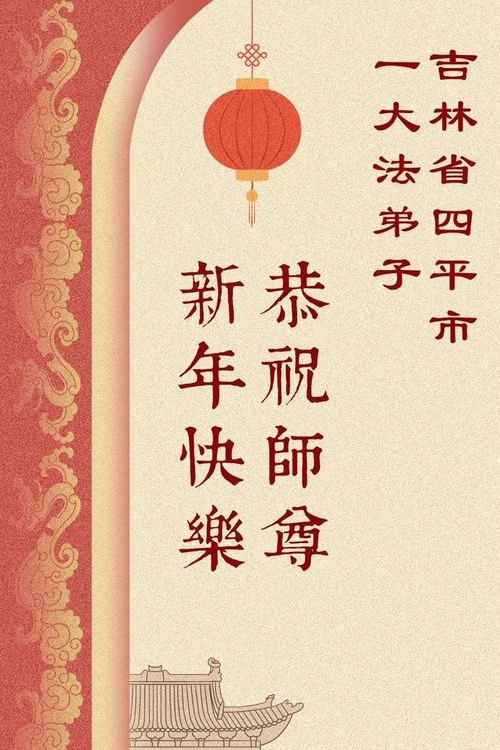 吉林省四平市
一大法弟子
恭祝師尊
新年快樂